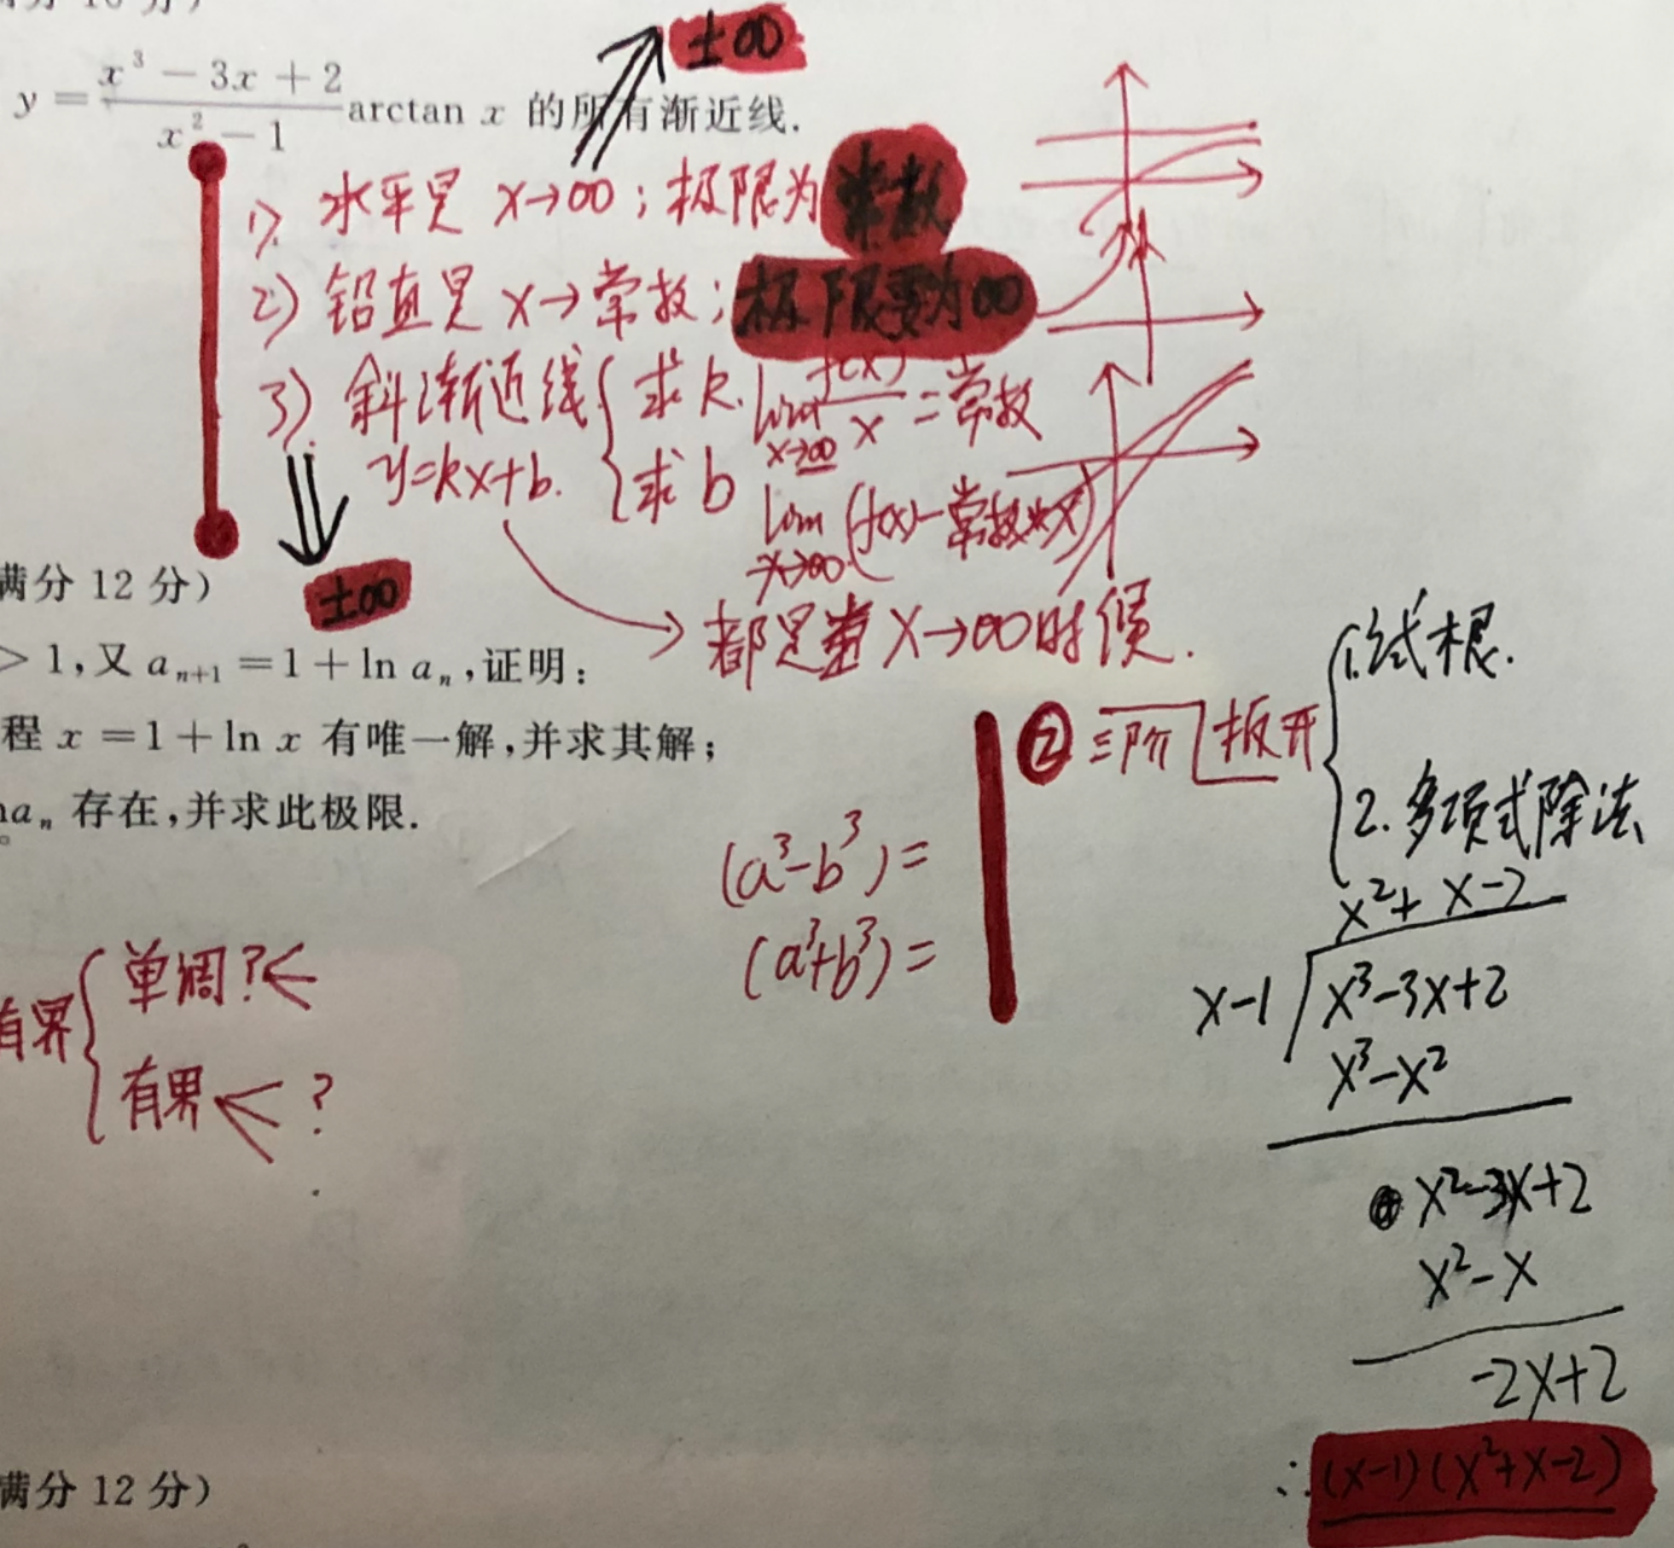 ±∞
y = \frac{x^3 - 3x + 2}{x^2 - 1} arctan x 的所有渐近线.
1) 水平是 x→∞; 极限为常数
2) 铅直是 x→常数; 极限要为∞
3) 斜渐近线 { 求k. lim_{x→∞} \frac{f(x)}{x} = 常数
y=kx+b. 求b lim_{x→∞} (f(x)-常数*x)
±∞
→ 都是当 x→∞时候.
满分 12 分)
> 1,又 a_{n+1} = 1 + ln a_n,证明:
程 x = 1 + ln x 有唯一解,并求其解;
a_n 存在,并求此极限.
② 三阶 拆开 { 1.试根.
2. 多项式除法
(a³-b³)=
(a³+b³)=
有界 { 单调?←
有界 ← ?
x²+x-2
x-1 x³-3x+2
x³-x²
x²-3x+2
x²-x
-2x+2
∴ (x-1)(x²+x-2)
满分 12 分)